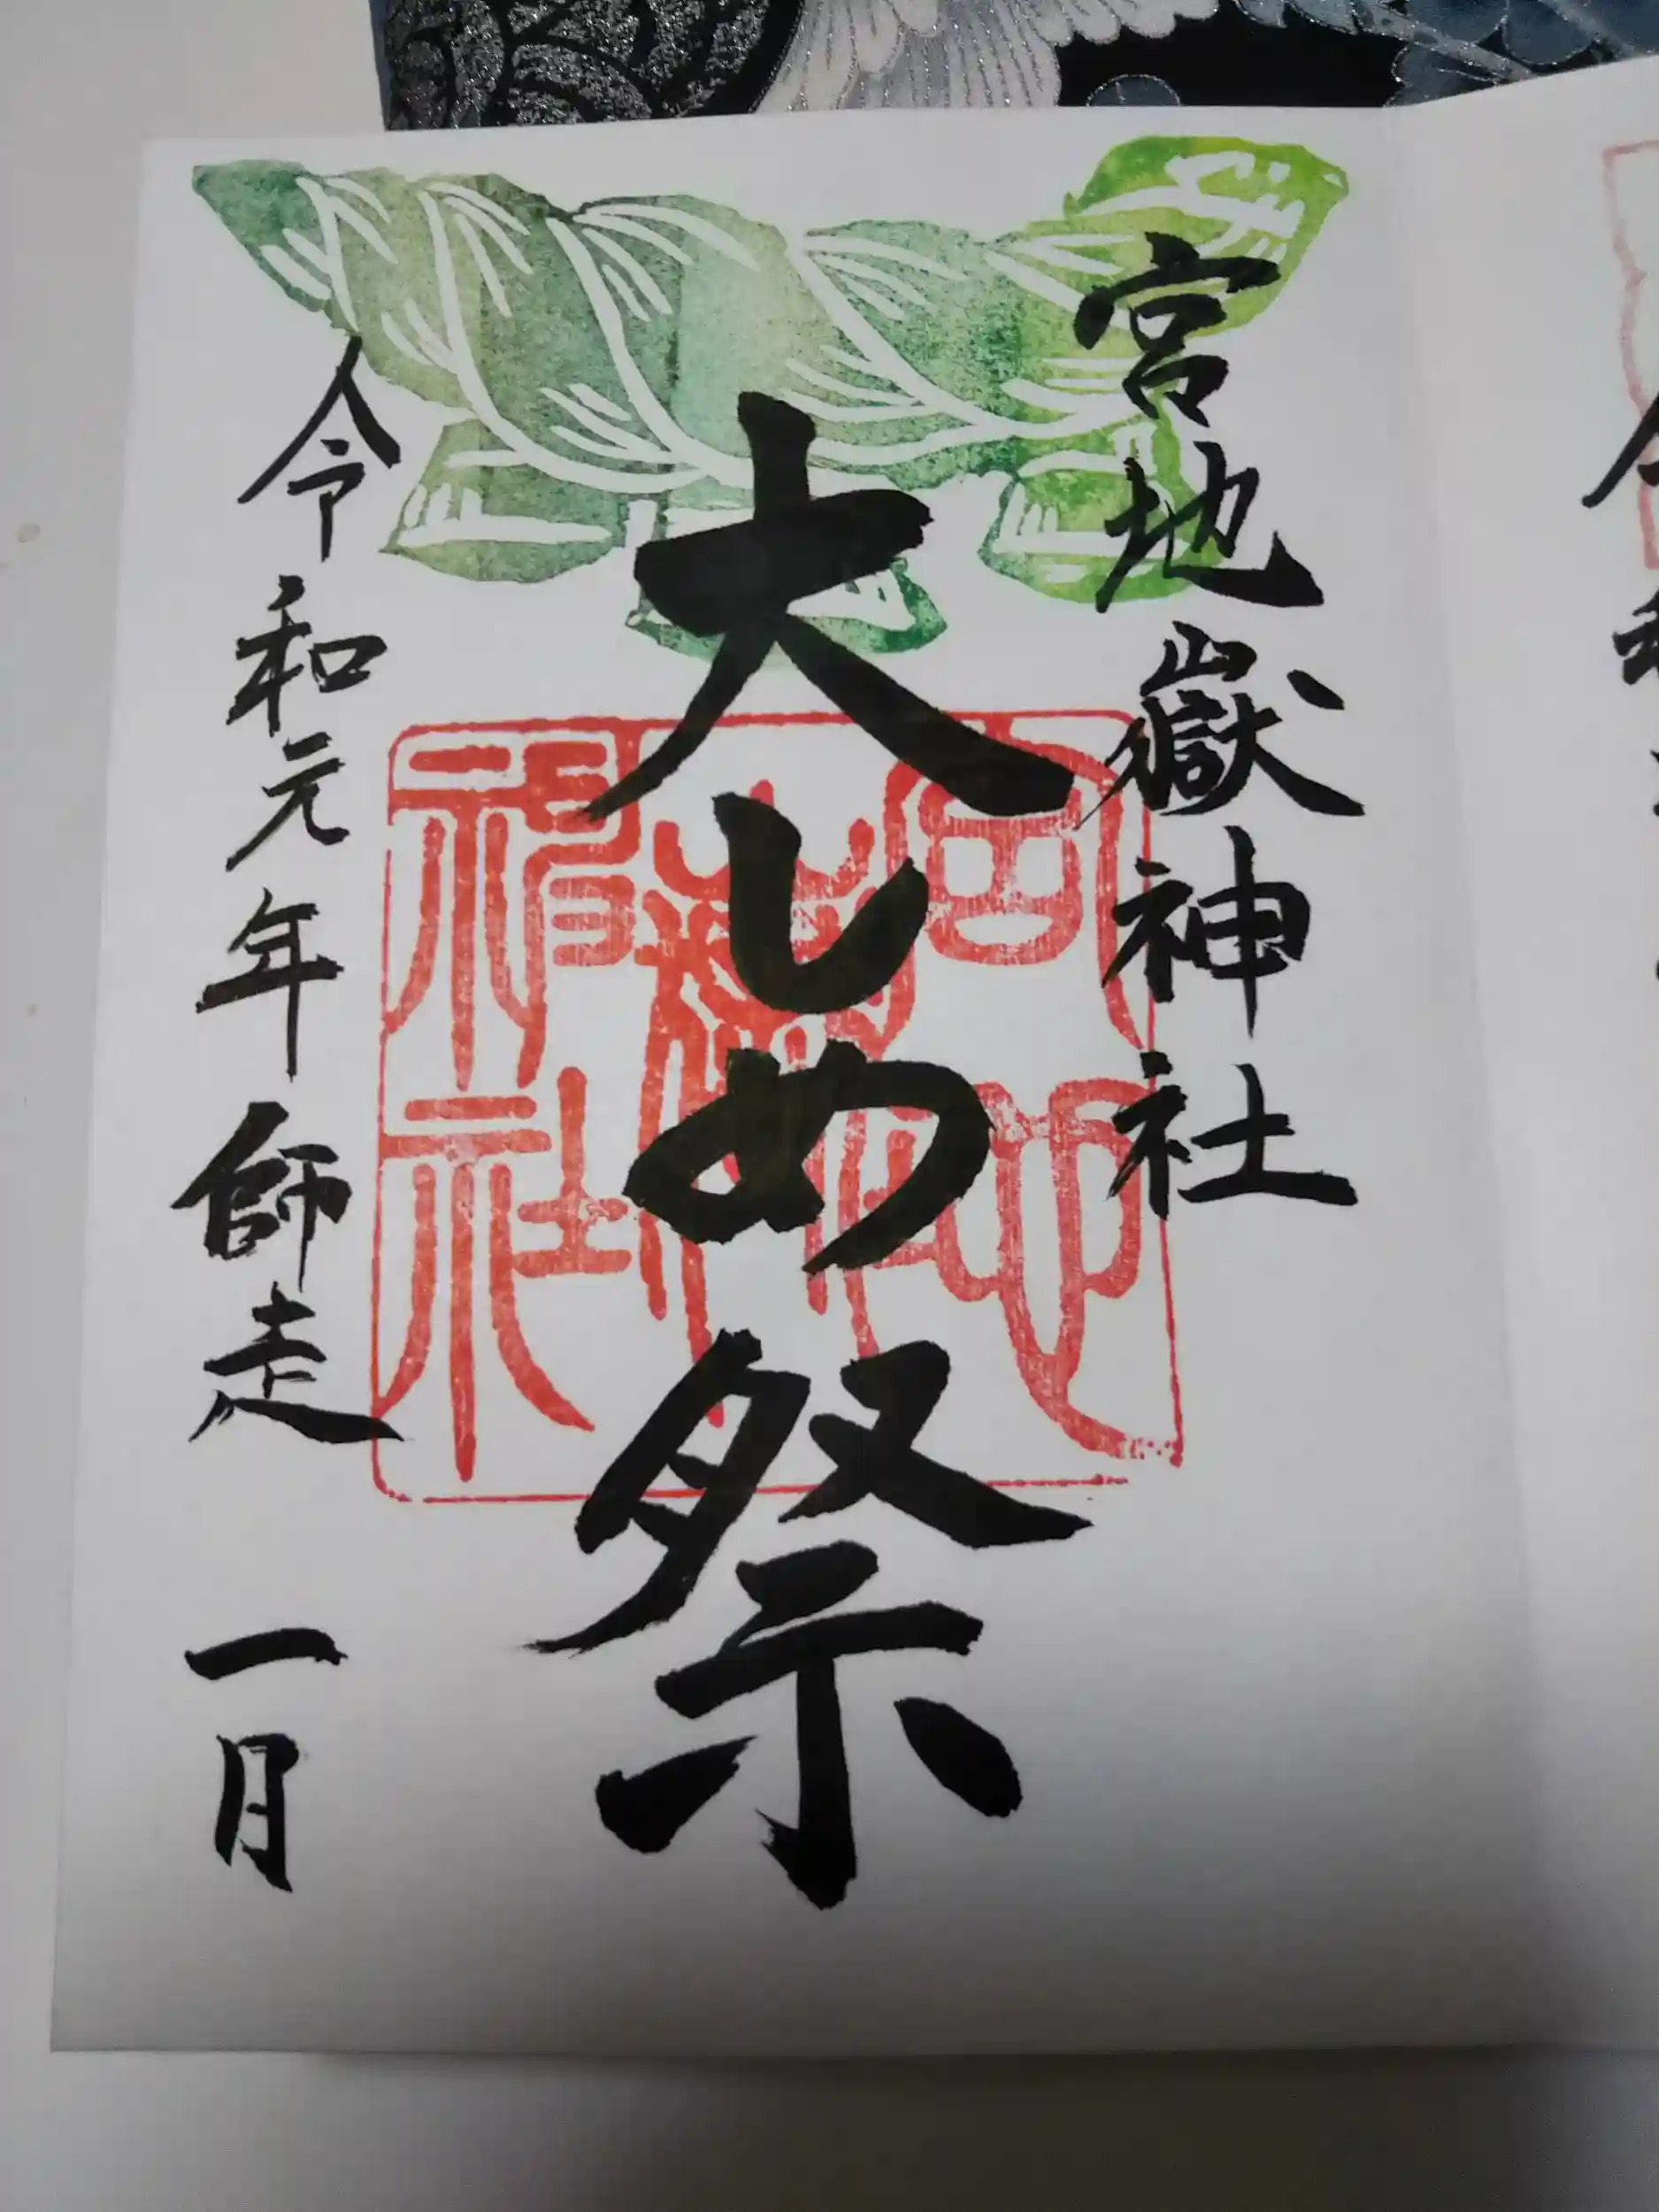 宮地嶽神社
大しめ祭
令和元年 師走 一日
宮地嶽神社